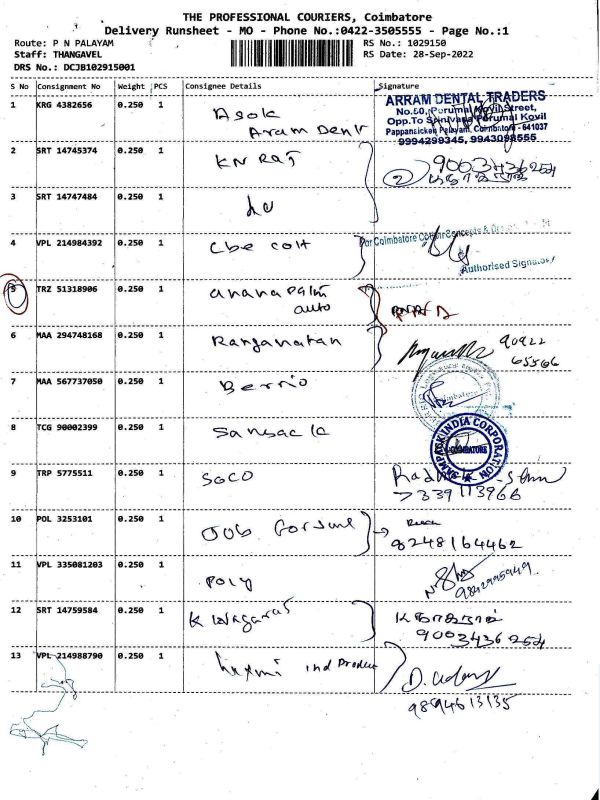 THE PROFESSIONAL COURIERS, Coimbatore
Delivery Runsheet - MO - Phone No.:0422-3505555 - Page No.:1
Route: P N PALAYAM
RS No.: 1029150
Staff: THANGAVEL
RS Date: 28-Sep-2022
DRS No.: DCJB102915001
S No Consignment No Weight PCS Consignee Details Signature
1 KRG 4382656 0.250 1 Asok
Aram Dent
ARRAM DENTAL TRADERS
No.50, Perumal Kovil Street,
Opp.To Srinivasa Perumal Kovil
Pappanaicken Palayam, Coimbatore - 641037
9994299345, 9943098555
2 SRT 14745374 0.250 1 KN RAJ
2 9003436254
3 SRT 14747484 0.250 1 do
4 VPL 214984392 0.250 1 Cbe colt
For Coimbatore
Authorised Signatory
5 TRZ 51318906 0.250 1 anana palm
auto
6 MAA 294748168 0.250 1 Ranganatan
90922
65566
7 MAA 567737050 0.250 1 Berrio
8 TCG 90002399 0.250 1 Sansack
SAMPACK INDIA CORPORATION
COIMBATORE
9 TRP 5775511 0.250 1 SGCO
7339113966
10 POL 3253101 0.250 1
8248164462
11 VPL 335081203 0.250 1 Poly
9842995949
12 SRT 14759584 0.250 1
9003436254
13 VPL 214988790 0.250 1 luxmi ind Produc
9894613135